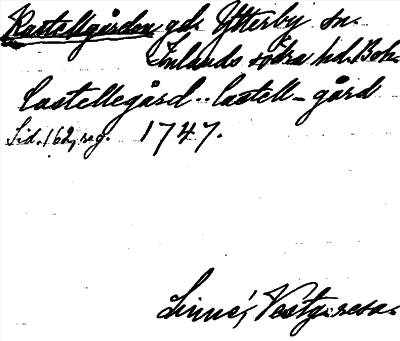 Kastellgården gd. Ytterby sn.
Inlands södra hd. Boh.
Castellegård .. Castell-gård
Sid. 162, reg. 1747.
Linné, Vestg. resa.